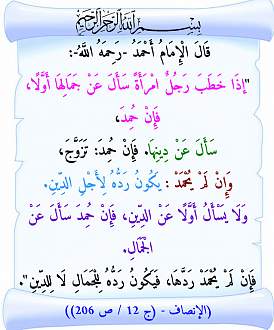 بِسْمِ اللهِ الرَّحْمٰنِ الرَّحِيْمِ
قَالَ الْإِمَامُ أَحْمَدُ -رَحِمَهُ اللَّهُ-:
"إِذَا خَطَبَ رَجُلٌ امْرَأَةً سَأَلَ عَنْ جَمَالِهَا أَوَّلًا،
فَإِنْ حُمِدَ،
سَأَلَ عَنْ دِينِهَا. فَإِنْ حُمِدَ: تَزَوَّجَ،
وَإِنْ لَمْ يُحْمَدْ: يَكُونُ رَدُّهُ لِأَجْلِ الدِّينِ.
وَلَا يَسْأَلُ أَوَّلًا عَنْ الدِّينِ، فَإِنْ حُمِدَ سَأَلَ عَنْ
الْجَمَالِ.
فَإِنْ لَمْ يُحْمَدْ رَدَّهَا، فَيَكُونُ رَدُّهُ لِلْجَمَالِ لَا لِلدِّينِ".
((الإنصاف - (ج 12 / ص 206))